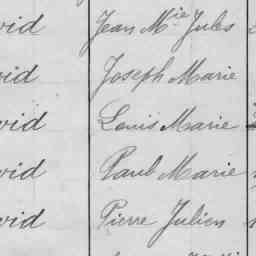 vid Jean Mie Jules
vid Joseph Marie
vid Louis Marie
vid Paul Marie
vid Pierre Julien